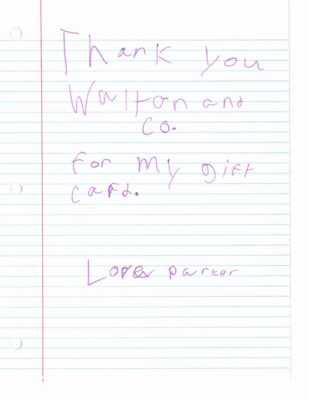 Thank you
Walton and
co.
for my gift
card.
Parker